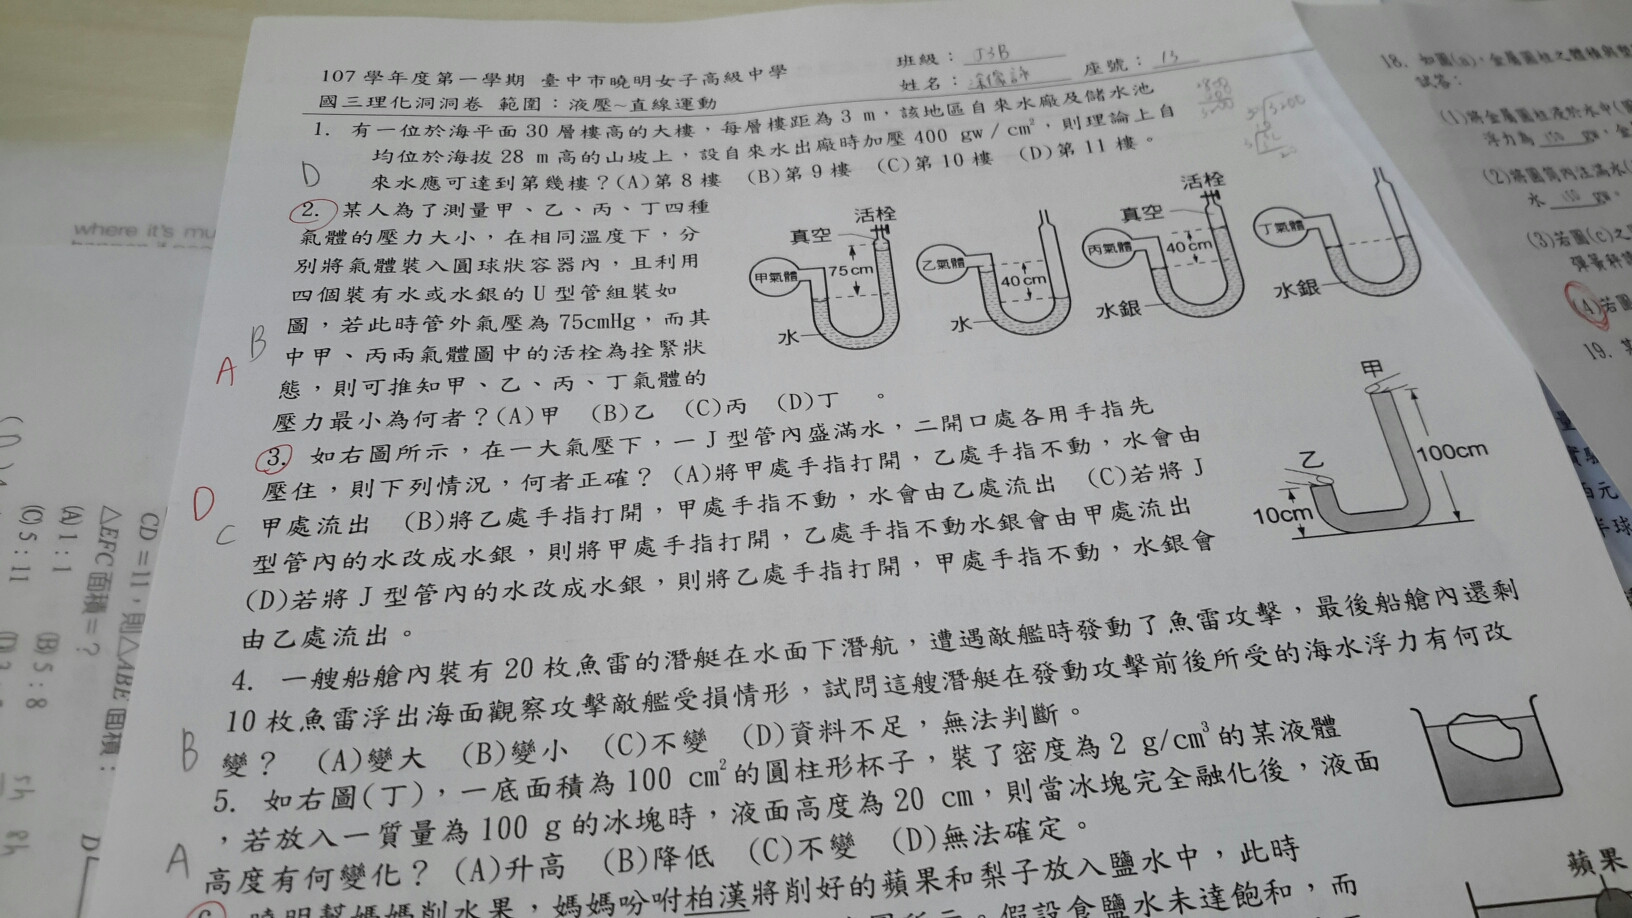 107 學年度第一學期 臺中市曉明女子高級中學
班級：J3B
姓名： 座號：13
國三理化洞洞卷 範圍：液壓~直線運動
1. 有一位於海平面 30 層樓高的大樓，每層樓距為 3 m，該地區自來水廠及儲水池
均位於海拔 28 m 高的山坡上，設自來水出廠時加壓 400 gw／cm²，則理論上自
D 來水應可達到第幾樓？(A)第 8 樓 (B)第 9 樓 (C)第 10 樓 (D)第 11 樓。
2. 某人為了測量甲、乙、丙、丁四種
氣體的壓力大小，在相同溫度下，分
別將氣體裝入圓球狀容器內，且利用
四個裝有水或水銀的 U 型管組裝如
圖，若此時管外氣壓為 75cmHg，而其
B 中甲、丙兩氣體圖中的活栓為拴緊狀
A 態，則可推知甲、乙、丙、丁氣體的
壓力最小為何者？(A)甲 (B)乙 (C)丙 (D)丁 。
活栓
真空
甲氣體
75cm
水
乙氣體
40cm
水
活栓
真空
丙氣體
40cm
水銀
丁氣體
水銀
3. 如右圖所示，在一大氣壓下，一 J 型管內盛滿水，二開口處各用手指先
壓住，則下列情況，何者正確？ (A)將甲處手指打開，乙處手指不動，水會由
D 甲處流出 (B)將乙處手指打開，甲處手指不動，水會由乙處流出 (C)若將 J
C 型管內的水改成水銀，則將甲處手指打開，乙處手指不動水銀會由甲處流出
(D)若將 J 型管內的水改成水銀，則將乙處手指打開，甲處手指不動，水銀會
由乙處流出。
甲
乙
100cm
10cm
4. 一艘船艙內裝有 20 枚魚雷的潛艇在水面下潛航，遭遇敵艦時發動了魚雷攻擊，最後船艙內還剩
10 枚魚雷浮出海面觀察攻擊敵艦受損情形，試問這艘潛艇在發動攻擊前後所受的海水浮力有何改
B 變？ (A)變大 (B)變小 (C)不變 (D)資料不足，無法判斷。
5. 如右圖(丁)，一底面積為 100 cm²的圓柱形杯子，裝了密度為 2 g/cm³的某液體
，若放入一質量為 100 g 的冰塊時，液面高度為 20 cm，則當冰塊完全融化後，液面
A 高度有何變化？ (A)升高 (B)降低 (C)不變 (D)無法確定。
曉明幫媽媽削水果，媽媽吩咐柏漢將削好的蘋果和梨子放入鹽水中，此時
假設食鹽水未達飽和，而
蘋果
where it's mu
CD＝11，則△ABE 面積：
△EFC 面積＝？
(A) 1：1 (B) 5：8
(C) 5：11
18. 如圖(a)，金屬圓柱之體積與
試答：
(1)將金屬圓柱浸於水中(
浮力為 150 gw，金
(2)將圓筒內注滿水(
水 150 gw。
(3)若圖(c)之
彈簧秤讀
(4)若圖
19.